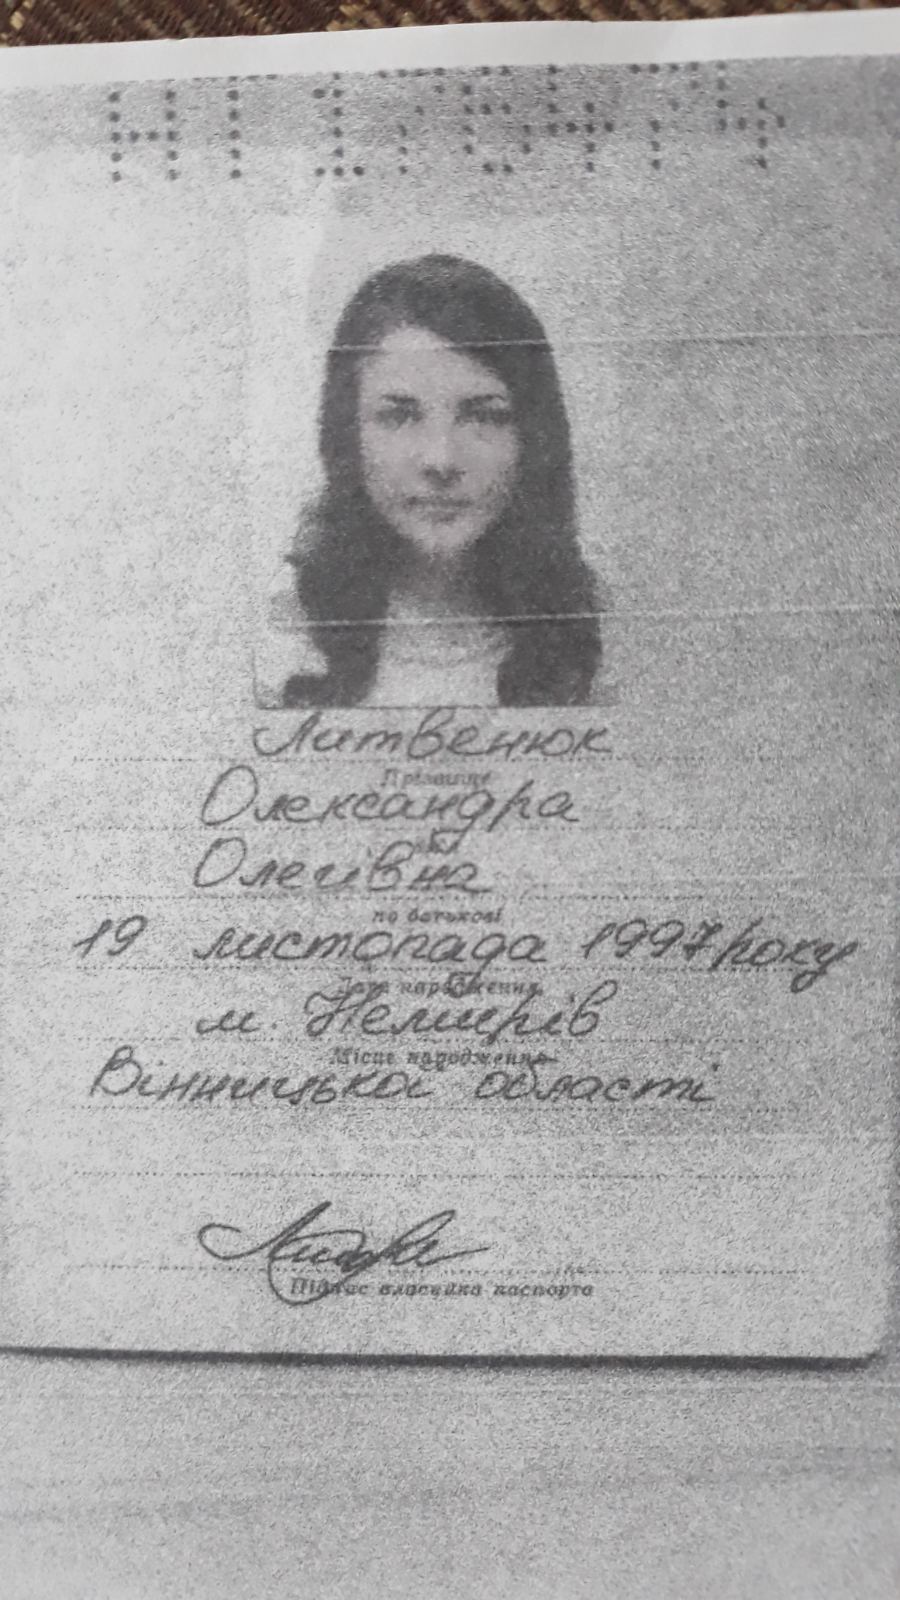 Литвенюк
Прізвище
Олександра
Олегівна
по батькові
19 листопада 1997 року
Дата народження
м. Немирів
Місце народження
Вінницької області
Підпис власника паспорта